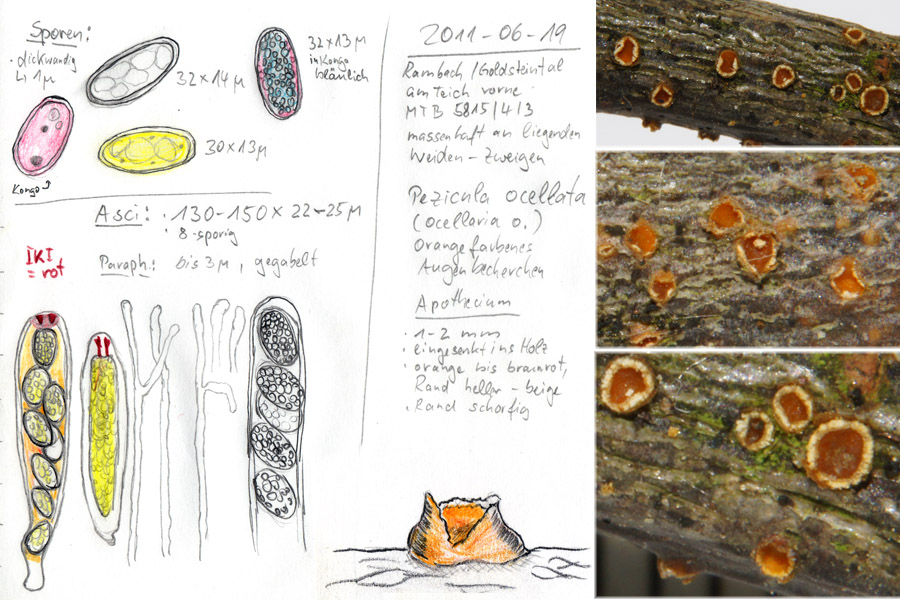 Sporen:
• dickwandig
↳ 1µ
32 x 14 µ
32 x 13 µ
in Kongo
bläulich
30 x 13 µ
Kongo
Asci: • 130-150 x 22-25 µ
• 8-sporig
IKI
= rot
Paraph.: bis 3 µ, gegabelt
2011-06-19
Rambach / Goldsteintal
am Teich vorne
MTB 5815/4/3
massenhaft an liegenden
Weiden-Zweigen
Pezicula ocellata
(ocellaria o.)
Orangefarbenes
Augenbecherchen
Apothecium
• 1-2 mm
• eingesenkt ins Holz
• orange bis braunrot,
Rand heller - beige
• Rand schorfig